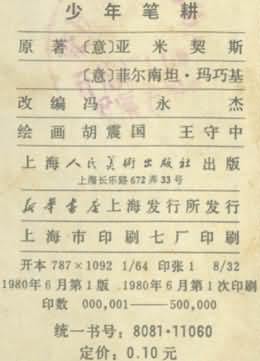 少年笔耕
原著〔意〕亚米契斯
〔意〕菲尔南坦·玛巧基
改编 冯永杰
绘画 胡震国 王守中
上海人民美術出版社出版
上海长乐路672弄33号
新华书店上海发行所发行
上海市印刷七厂印刷
开本 787×1092 1/64 印张1 8/32
1980年6月第1版 1980年6月第1次印刷
印数 000,001——500,000
统一书号: 8081·11060
定价: 0.10元